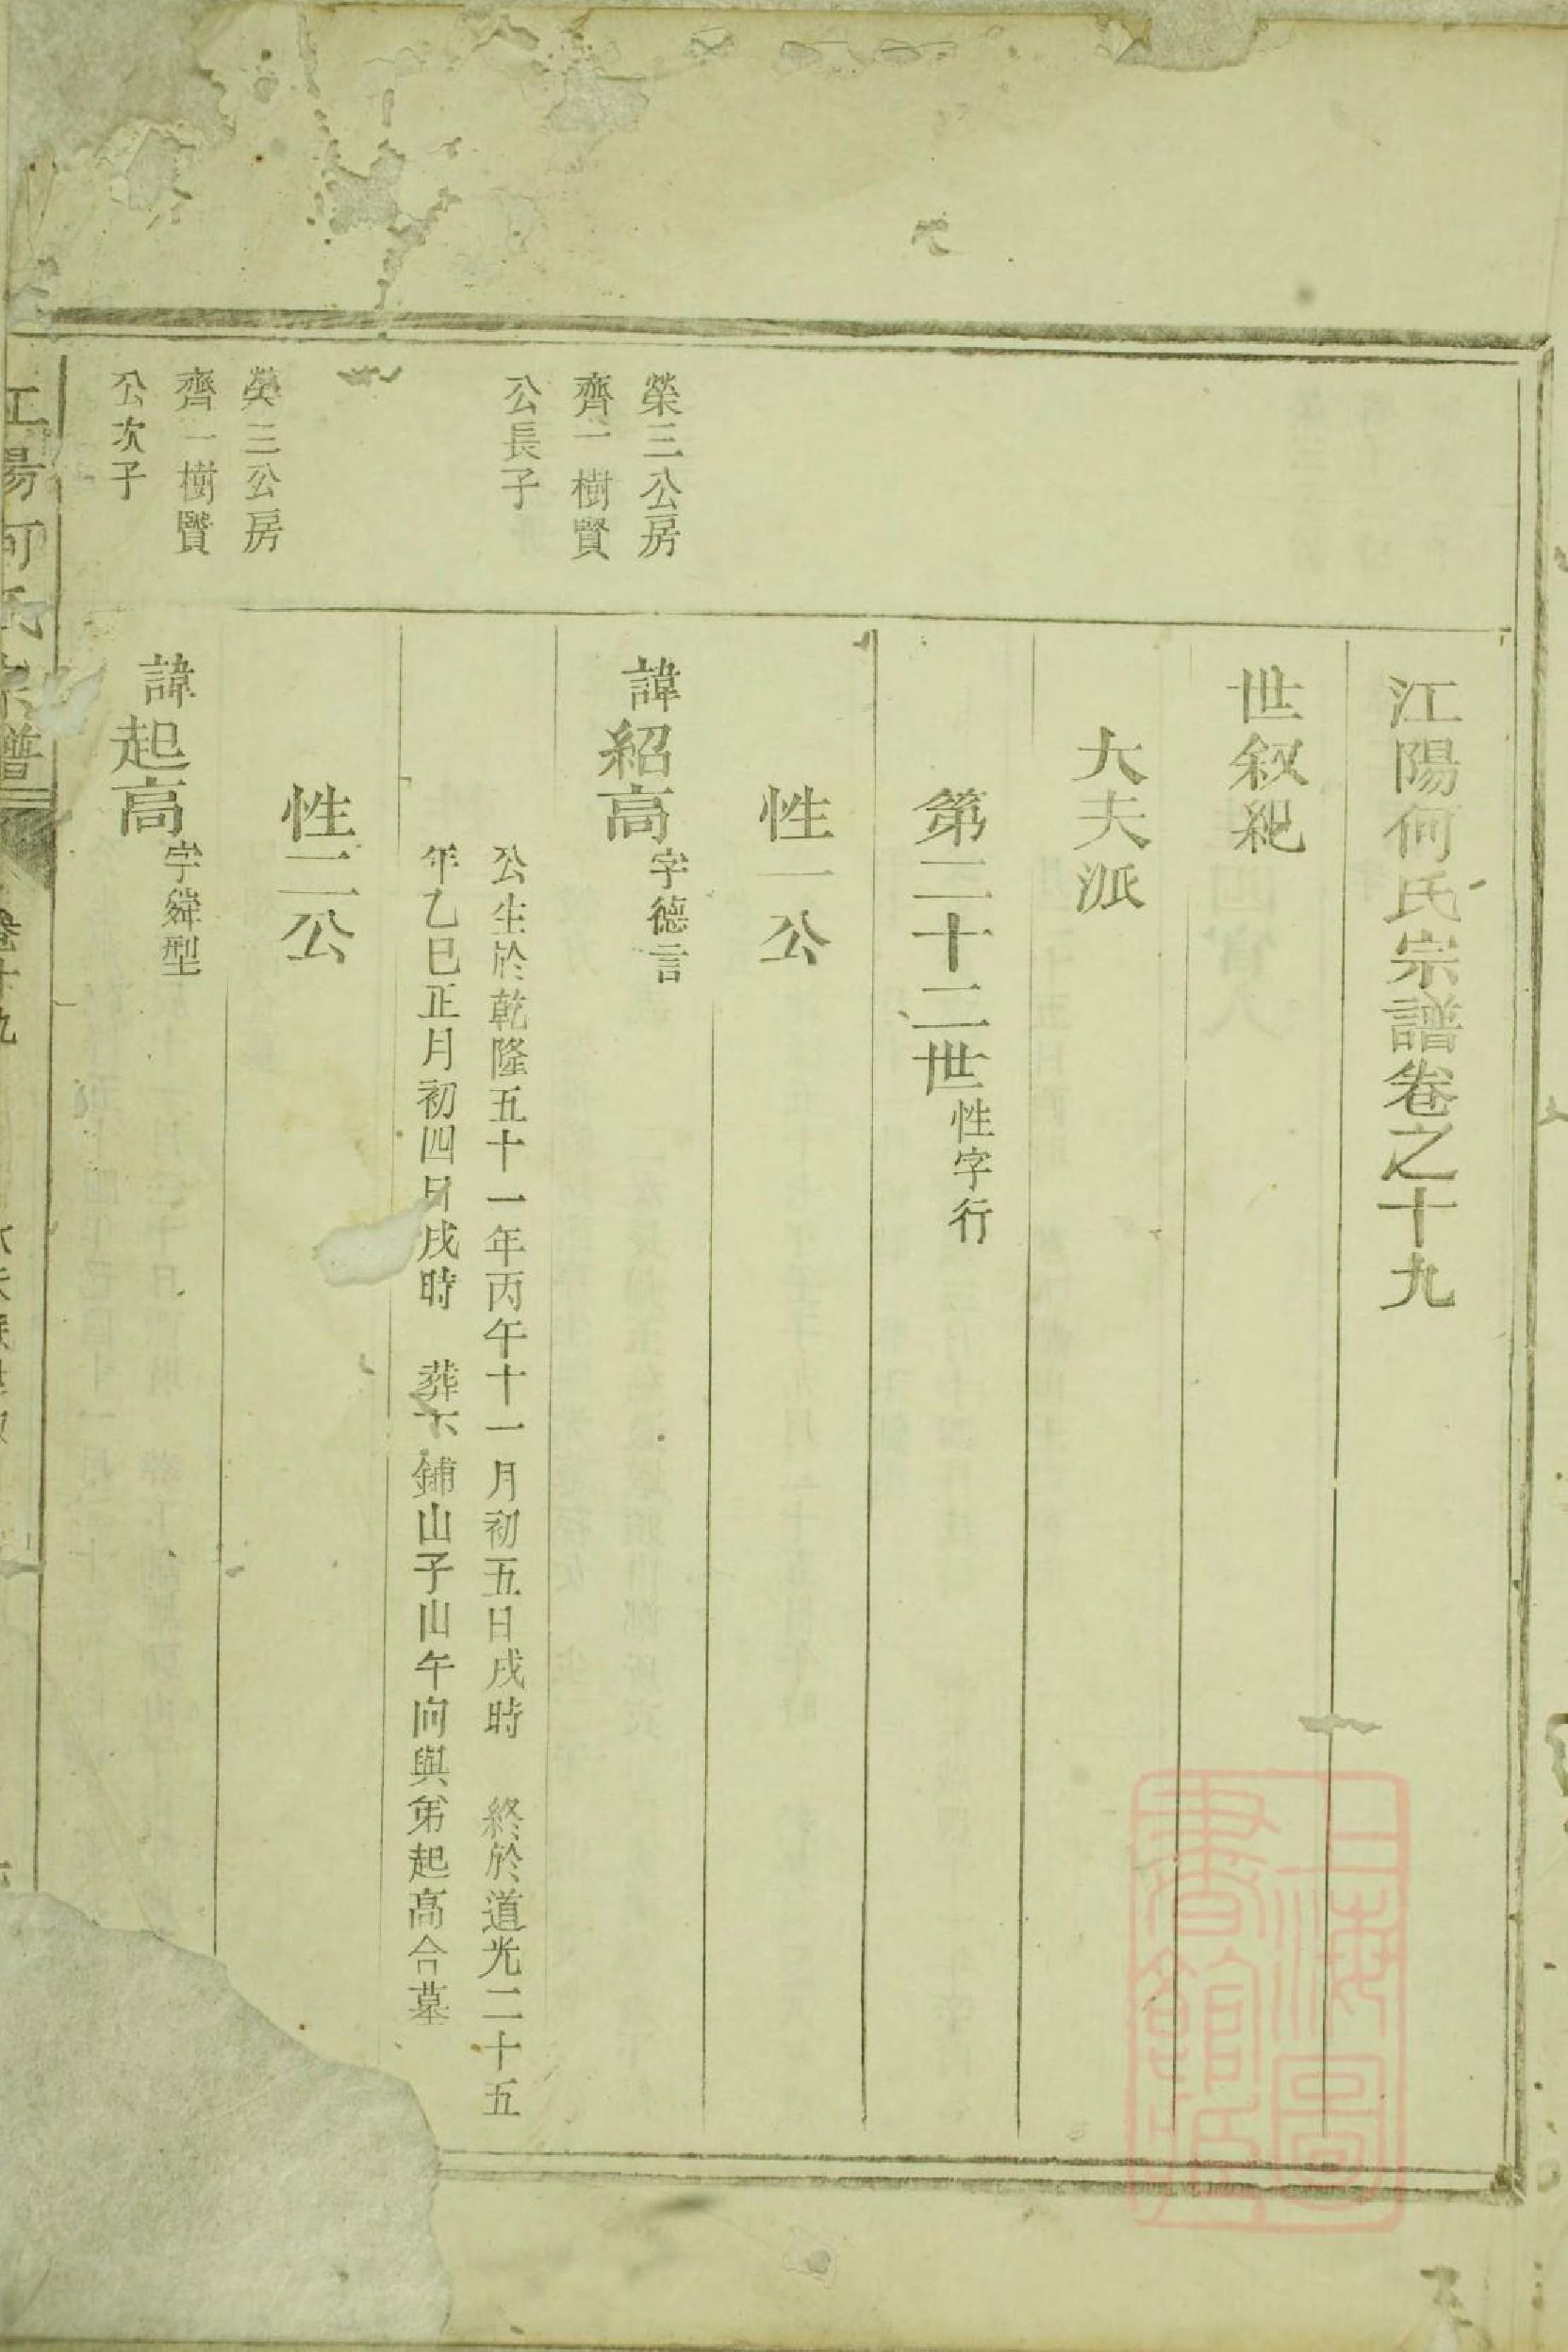 江陽何氏宗譜卷之十九
世叙紀
大夫派
第二十二世性字行
性一公
榮三公房
齊一樹賢
公長子
諱紹高字德言
公生於乾隆五十一年丙午十一月初五日戌時 終於道光二十五
年乙巳正月初四日戌時 葬下鋪山子山午向與弟起高合墓
性二公
榮三公房
齊一樹賢
公次子
諱起高字舜型
江陽何氏宗譜
卷十九
上海圖書館藏